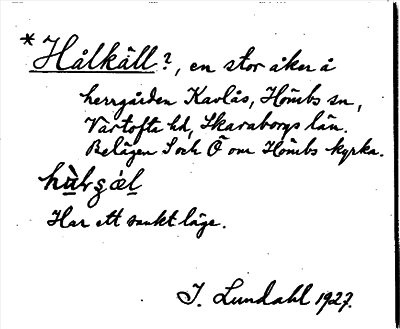 *Hålkäll?, en stor åker å
herrgården Kavlås, Hömbs sn,
Vartofta hd, Skaraborgs län.
Belägen S och Ö om Hömbs kyrka.
Har ett sankt läge.
I. Lundahl 1927.